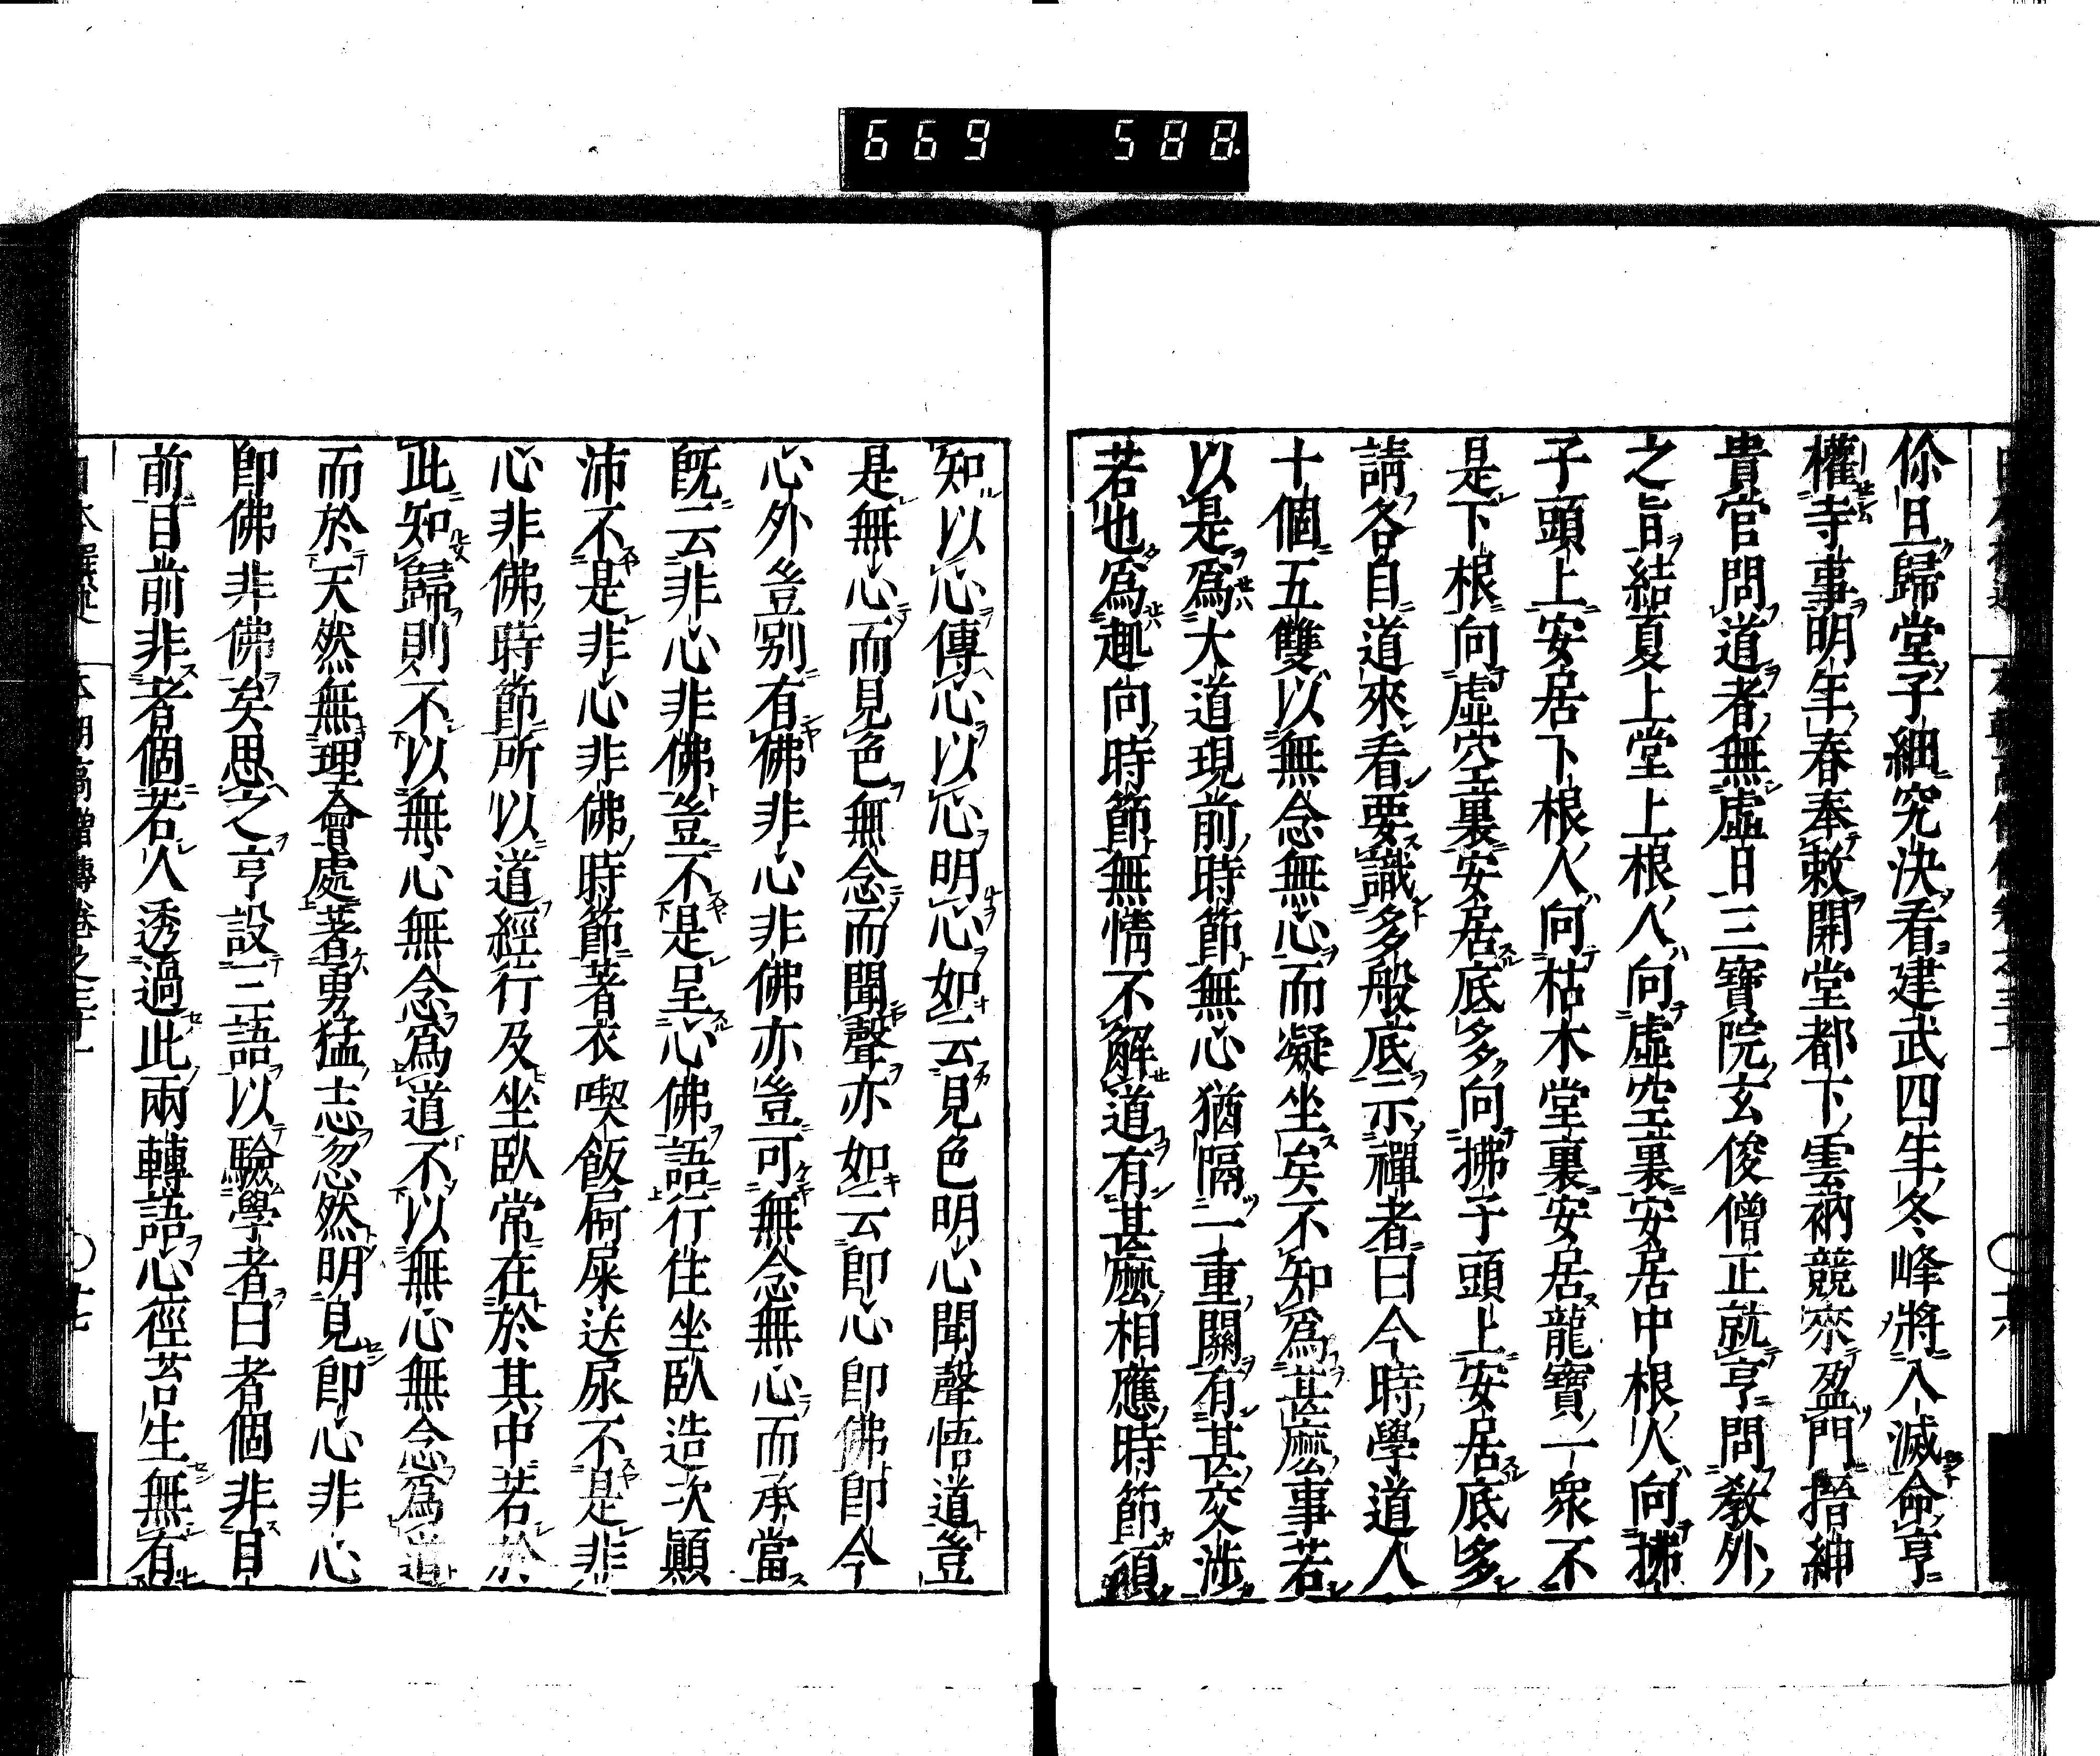 669 588
你且歸堂子細究決看建武四年冬峰將入滅命亨
權寺事明年春奉敕開堂都下雲衲競來盈門搢紳
貴官問道者無虛日三寶院玄俊僧正就亨問教外
之旨結夏上堂上根人向虛空裏安居中根人向拂
子頭上安居下根人向枯木堂裏安居龍寶一衆不
是下根向虛空裏安居底多向拂子頭上安居底多
請各自道來看要識多般底示禪者曰今時學道人
十個五雙以無念無心而凝坐矣不知爲甚麽事若
以是爲大道現前時節無心猶隔一重關有甚交涉
若也爲趣向時節無情不解道有甚麽相應時節須
知以心傳心以心明心如云見色明心聞聲悟道豈
是無心而見色無念而聞聲亦如云卽心卽佛卽今
心外豈別有佛非心非佛亦豈可無念無心而承當
旣云非心非佛豈不是呈心佛語行住坐臥造次顚
沛不是非心非佛時節著衣喫飯屙屎送尿不是非
心非佛時節所以道經行及坐臥常在於其中若於
此知歸則不以無心無念爲道不以無心無念爲道
而於天然無理會處著勇猛志忽然明見卽心非心
卽佛非佛矣思之亨設三語以驗學者曰者個非目
前目前非者個若人透過此兩轉語心徑苔生無有
本朝高僧傳卷之三十一